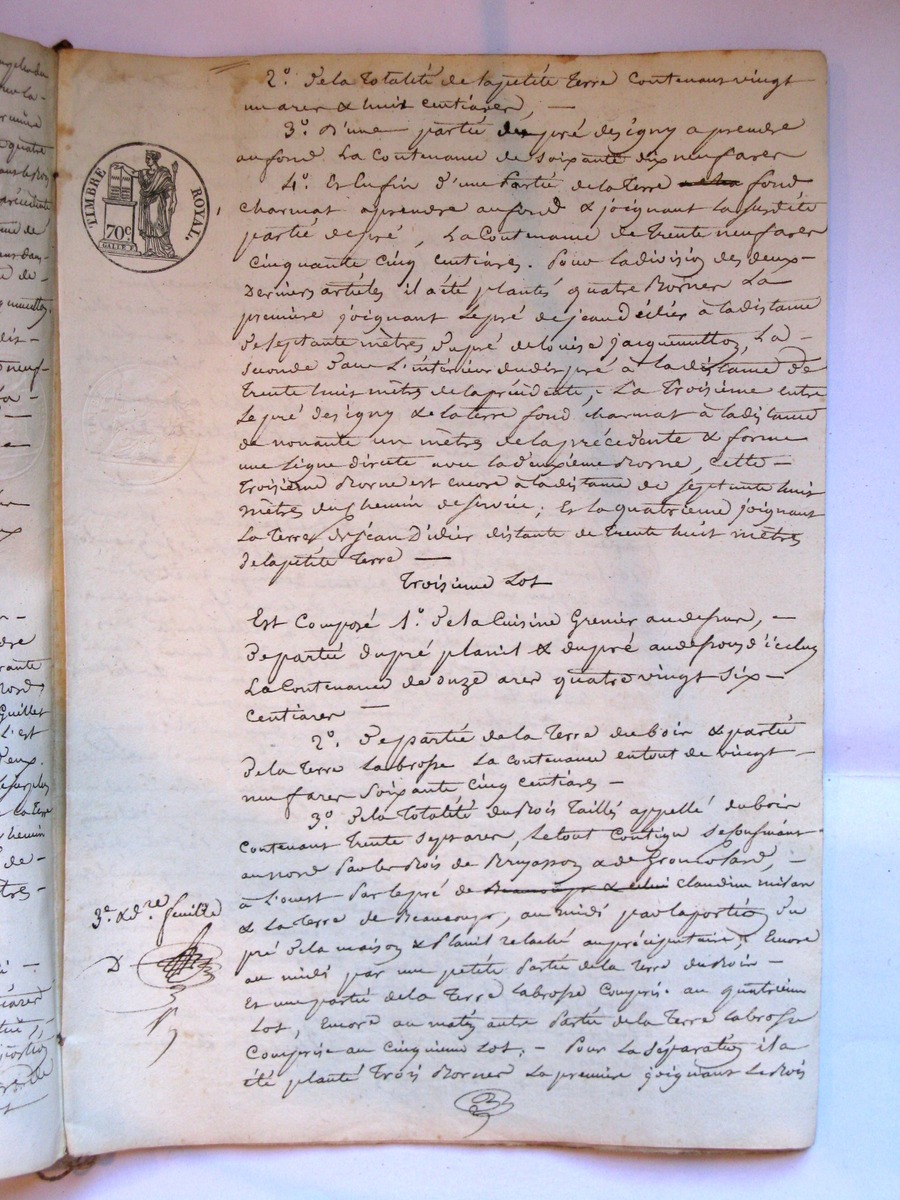 2.° De la Totalité de la petite Terre contenant vingt
un ares & huit centiares, —
3.° D'une partie du pré des igny a prendre
au fond la Contenance de soixante dix neuf ares
4.° Et Enfin d'une Partie de la Terre fond
charmat a prendre au fond & joignant la susdite
partie de pré, La Contenance de Trente neuf ares
cinquante cinq centiares. Pour la division des deux
Derniers articles il a été plantés quatre Bornes La
première joignant le pré de jean Didier à la distance
de septante mètres du pré de Louise jacquemettoz, La
seconde dans L'intérieur dudit pré à la distance de
Trente huit mètres de la précédente, La Troisième entre
le pré des igny & de la terre fond charmat à la distance
de nonante un mètres de la précédente & forme
une Ligne directe avec la deuxième Borne, cette
Troisième Borne est encore à la distance de septante huit
mètres du chemin de service; Et la quatrième joignant
La Terre de jean Didier distante de Trente huit mètres
de la petite Terre —
Troisième Lot
Est Composé 1.° De la Cuisine Grenier au dessus, —
De partie du pré planit & du pré au dessous d'
La Contenance de onze ares quatre vingt six —
Centiares —
2.° De partie de la Terre du bois & partie
De la Terre Labrosse La contenance en tout de vingt
neuf ares soixante cinq centiares —
3.° De la Totalité du Bois Taillés appellé du bois
contenant Trente sept ares, Le tout Contigu se confinant
au nord Par les Bois de & de
à L'ouest Par le pré de claudine
& La Terre de Beaucoup, au midi par la portion du
pré de la maison & Planit relaché au précipitaire, Encore
au midi par une petite Partie de la Terre du Bois —
Et une partie de la Terre Labrosse Comprise au quatrième
Lot, Encore au matin autre Partie de la Terre Labrosse
Comprise au Cinquième Lot. — Pour La séparation il a
été planté Trois Bornes La première joignant Le Bois
TIMBRE ROYAL.
70c
3.e & d.re feuille
D